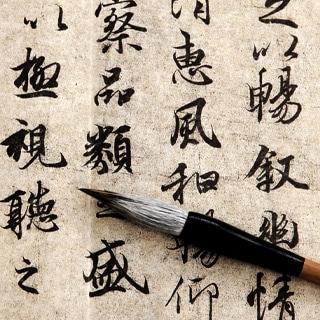 足以暢叙幽情
清惠風和暢仰
察品類之盛
以極視聽之